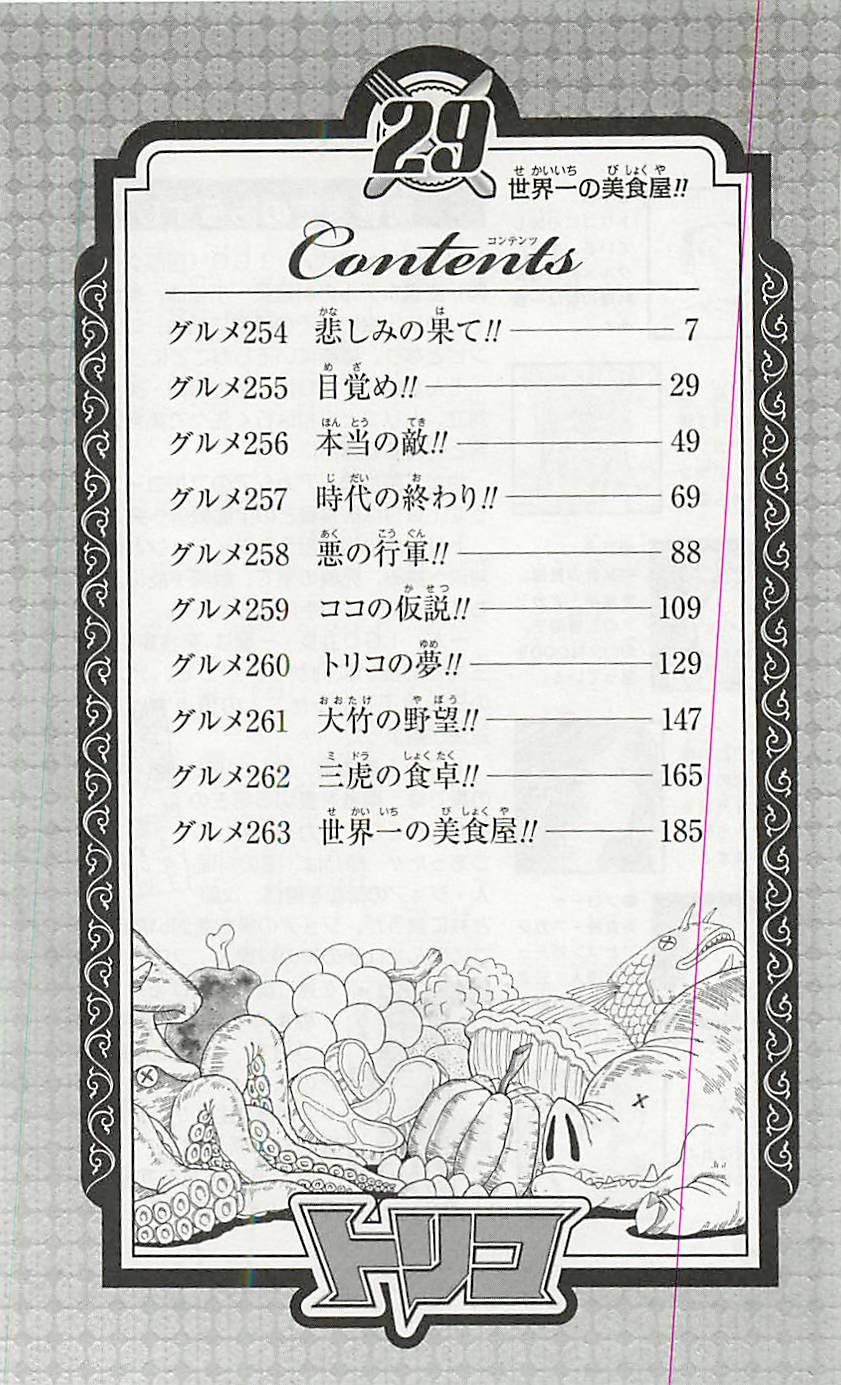 29
世界一の美食屋!!
Contents
グルメ254 悲しみの果て!! 7
グルメ255 目覚め!! 29
グルメ256 本当の敵!! 49
グルメ257 時代の終わり!! 69
グルメ258 悪の行軍!! 88
グルメ259 ココの仮説!! 109
グルメ260 トリコの夢!! 129
グルメ261 大竹の野望!! 147
グルメ262 三虎の食卓!! 165
グルメ263 世界一の美食屋!! 185
トリコ